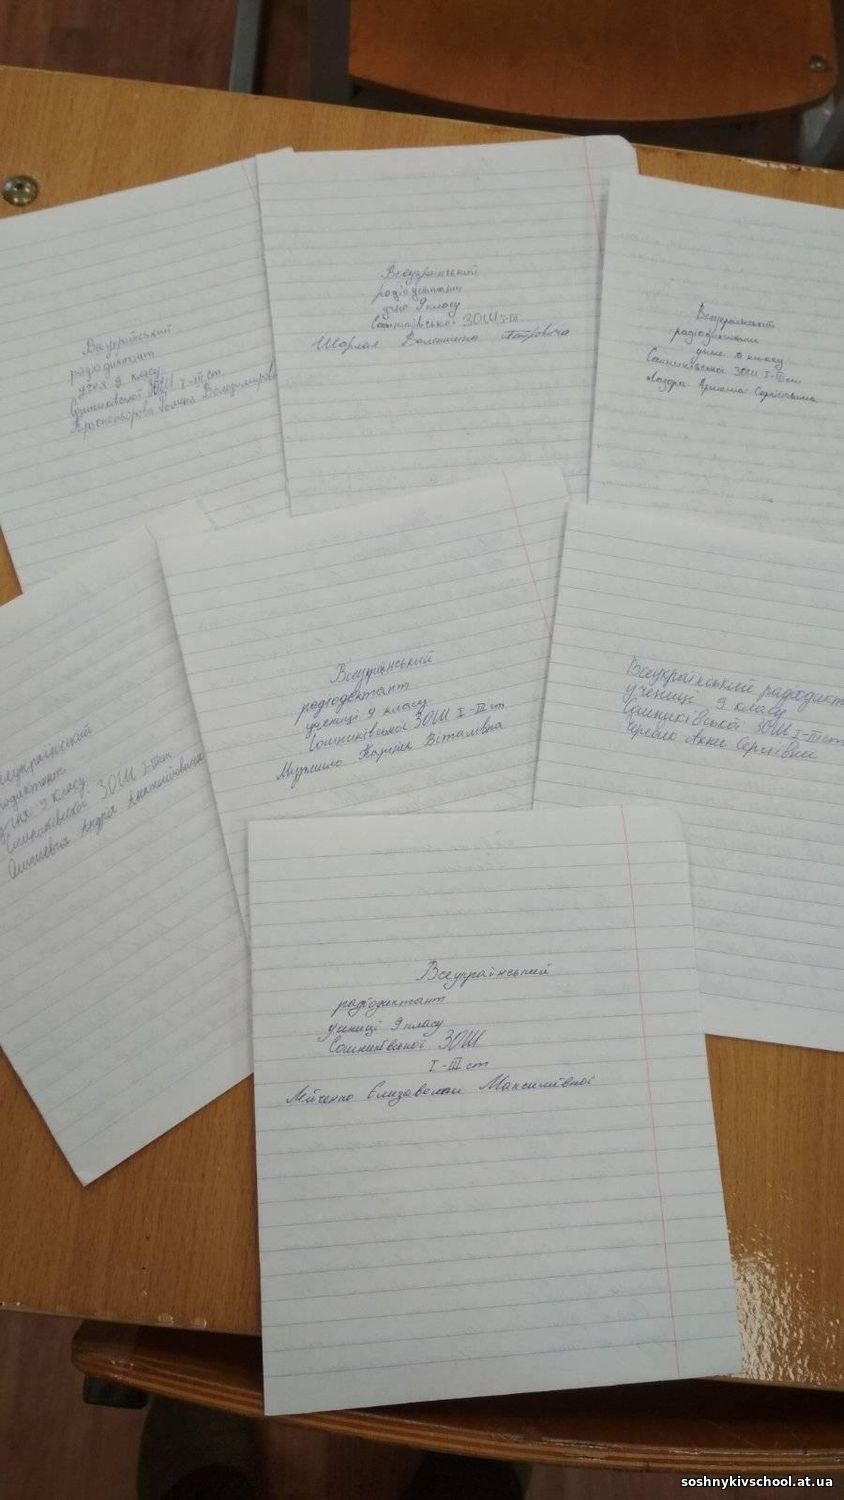 Всеукраїнський
радіодиктант
учня 9 класу
Сошниківської ЗОШ І-ІІІ ст
Володимиров
Всеукраїнський
радіодиктант
учня 9 класу
Сошниківської ЗОШ І-ІІІ
Шарлай Валентина Петровича
Всеукраїнський
радіодиктант
учня 9 класу
Сошниківської ЗОШ І-ІІІ ст
Сергійовича
Всеукраїнський
радіодиктант
учениці 9 класу
Сошниківської ЗОШ І-ІІІ ст
Каріни Віталівна
Всеукраїнський радіодикт
учениці 9 класу
Сошниківської ЗОШ І-ІІІ ст
Анни Сергіївни
сеукраїнський
одиктант
учня 9 класу
Сошниківської ЗОШ І-ІІІ ст
Андрія Анатолійовича
Всеукраїнський
радіодиктант
учениці 9 класу
Сошниківської ЗОШ
І-ІІІ ст
Лейченко Єлизавети Максимівної
soshnykivschool.at.ua